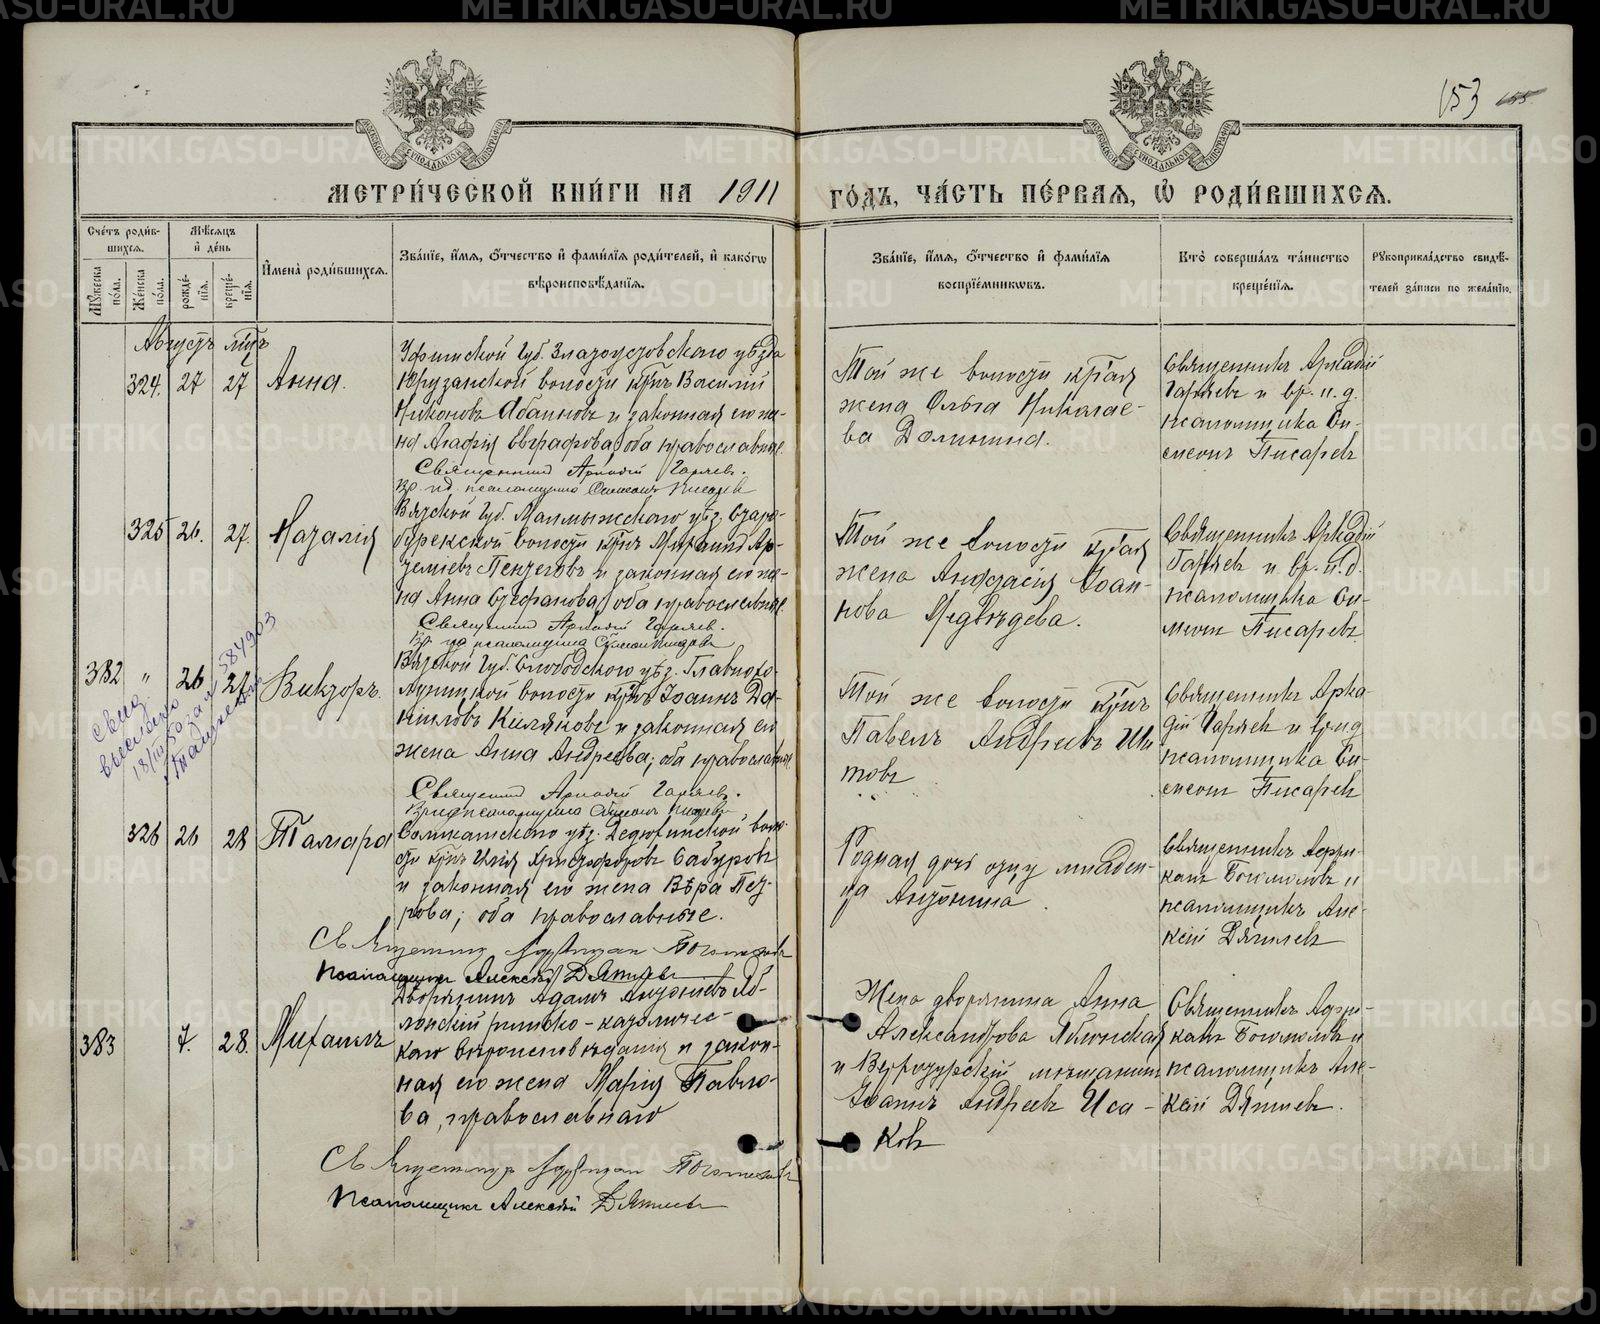 153 155
МЕТРИ́ЧЕСКОЙ КНИ́ГИ НА 1911 ГО́ДЪ, ЧА́СТЬ ПЕ́РВАЯ, Ѡ҆ РОДИ́ВШИХСЯ.
Сче́тъ роди́вшихся.
Мꙋжеска по́ла.
Же́нска по́ла.
Мѣ́сяцъ и҆ де́нь
рожде́нїя.
креще́нїя.
И҆мена̀ роди́вшихся.
Зва́нїе, и҆́мя, ѻ҆́тчество и҆ фами́лїя роди́телей, и҆ како́гѡ
вѣроисповѣ́данїя.
Зва́нїе, и҆́мя, ѻ҆́тчество и҆ фами́лїя
воспрїе́мникѡвъ.
Кто̀ соверша́лъ та́инство
креще́нїя.
Рꙋкоприкла́дство свидѣ́-
телей за́писи по жела́нїю.
Августъ мцъ
324. 27 27 Анна.
Уфимской Губ. Златоустовского уѣзда
Юрузанской волости крнъ Василій
Никоновъ Абаимовъ и законная его же-
на Агафія Евграфова, оба православные.
Священникъ Аркадій Гаряев.
Вр. и.д. псаломщика Симеонъ Писарев
Той же волости кр҃ая
жена Ольга Николае-
ва Долинина.
Священникъ Аркадій
Гаряевъ и вр. и. д.
псаломщика Си-
меонъ Писаревъ
325 26. 27. Наталія
Вятской Губ. Малмыжского уѣз. Старо-
бурекской волости крнъ Михаилъ Ар-
темьевъ и законная его же-
на Анна Стефанова, оба православные
Священникъ Аркадій Гаряев.
Вр. ид псаломщика Симеон Писаревъ
Той же волости кр҃ая
жена Анастасія Іоан-
нова Медвѣдева.
Священникъ Аркадій
Гаряевъ и вр. и.д.
псаломщика Си-
меонъ Писаревъ
382 " 26 27 Викторъ.
Вятской Губ. Слободского уѣз.
волости крнъ Іоаннъ Да-
ниловъ и законная его
жена Анна Андреева; оба православные
Священникъ Аркадій Гаряев.
Вр ид псаломщика Симеонъ Писарев
Той же волости крнъ
Павелъ Андреевъ
Священникъ Арка-
дій Гаряевъ и вр ид
псаломщика Си-
меонъ Писаревъ
высылано
326 26 28 Тамара
Соликамского уѣз. Дедюхинской воло-
сти крнъ Илія Христофоровъ Сабуровъ
и законная его жена Вѣра Пет-
рова; оба православные.
Священникъ Африкан Богомолов
Псаломщикъ Алексѣй Дягилевъ
Родная дочь отцу младен-
ца Антонина.
Священникъ Афри-
канъ Богомоловъ и
псаломщикъ Але-
ксій Дягилевъ
383 7. 28. Михаилъ
Дворянинъ Адамъ Антоніевъ Яб-
лонскій римско-католичес-
каго вѣроисповѣданія и закон-
ная его жена Марія Павло-
ва, православнаго
Священникъ Африкан Богомоловъ
Псаломщикъ Алексѣй Дягилевъ
Жена дворянина Анна
Александрова Яблонская
и Верхотурскій мѣщанинъ
Іоаннъ Андреевъ Иса-
ковъ
Священникъ Афри-
канъ Богомоловъ и
псаломщикъ Але-
ксій Дягилевъ.
METRIKI.GASO-URAL.RU